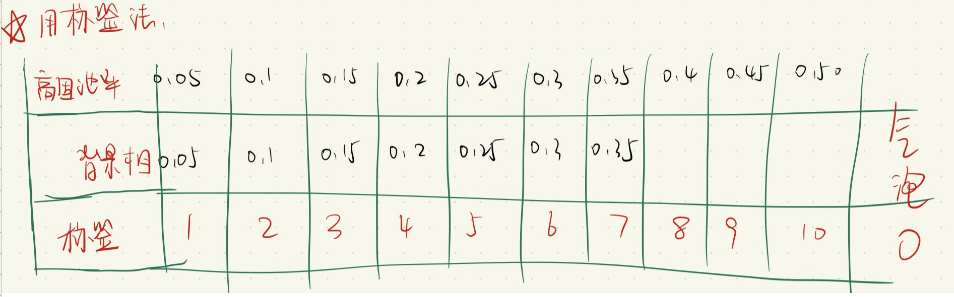 ☆ 用标签法.
高围池率 0.05 0.1 0.15 0.2 0.25 0.3 0.35 0.4 0.45 0.50
背景相 0.05 0.1 0.15 0.2 0.25 0.3 0.35
标签 1 2 3 4 5 6 7 8 9 10
气泡 0